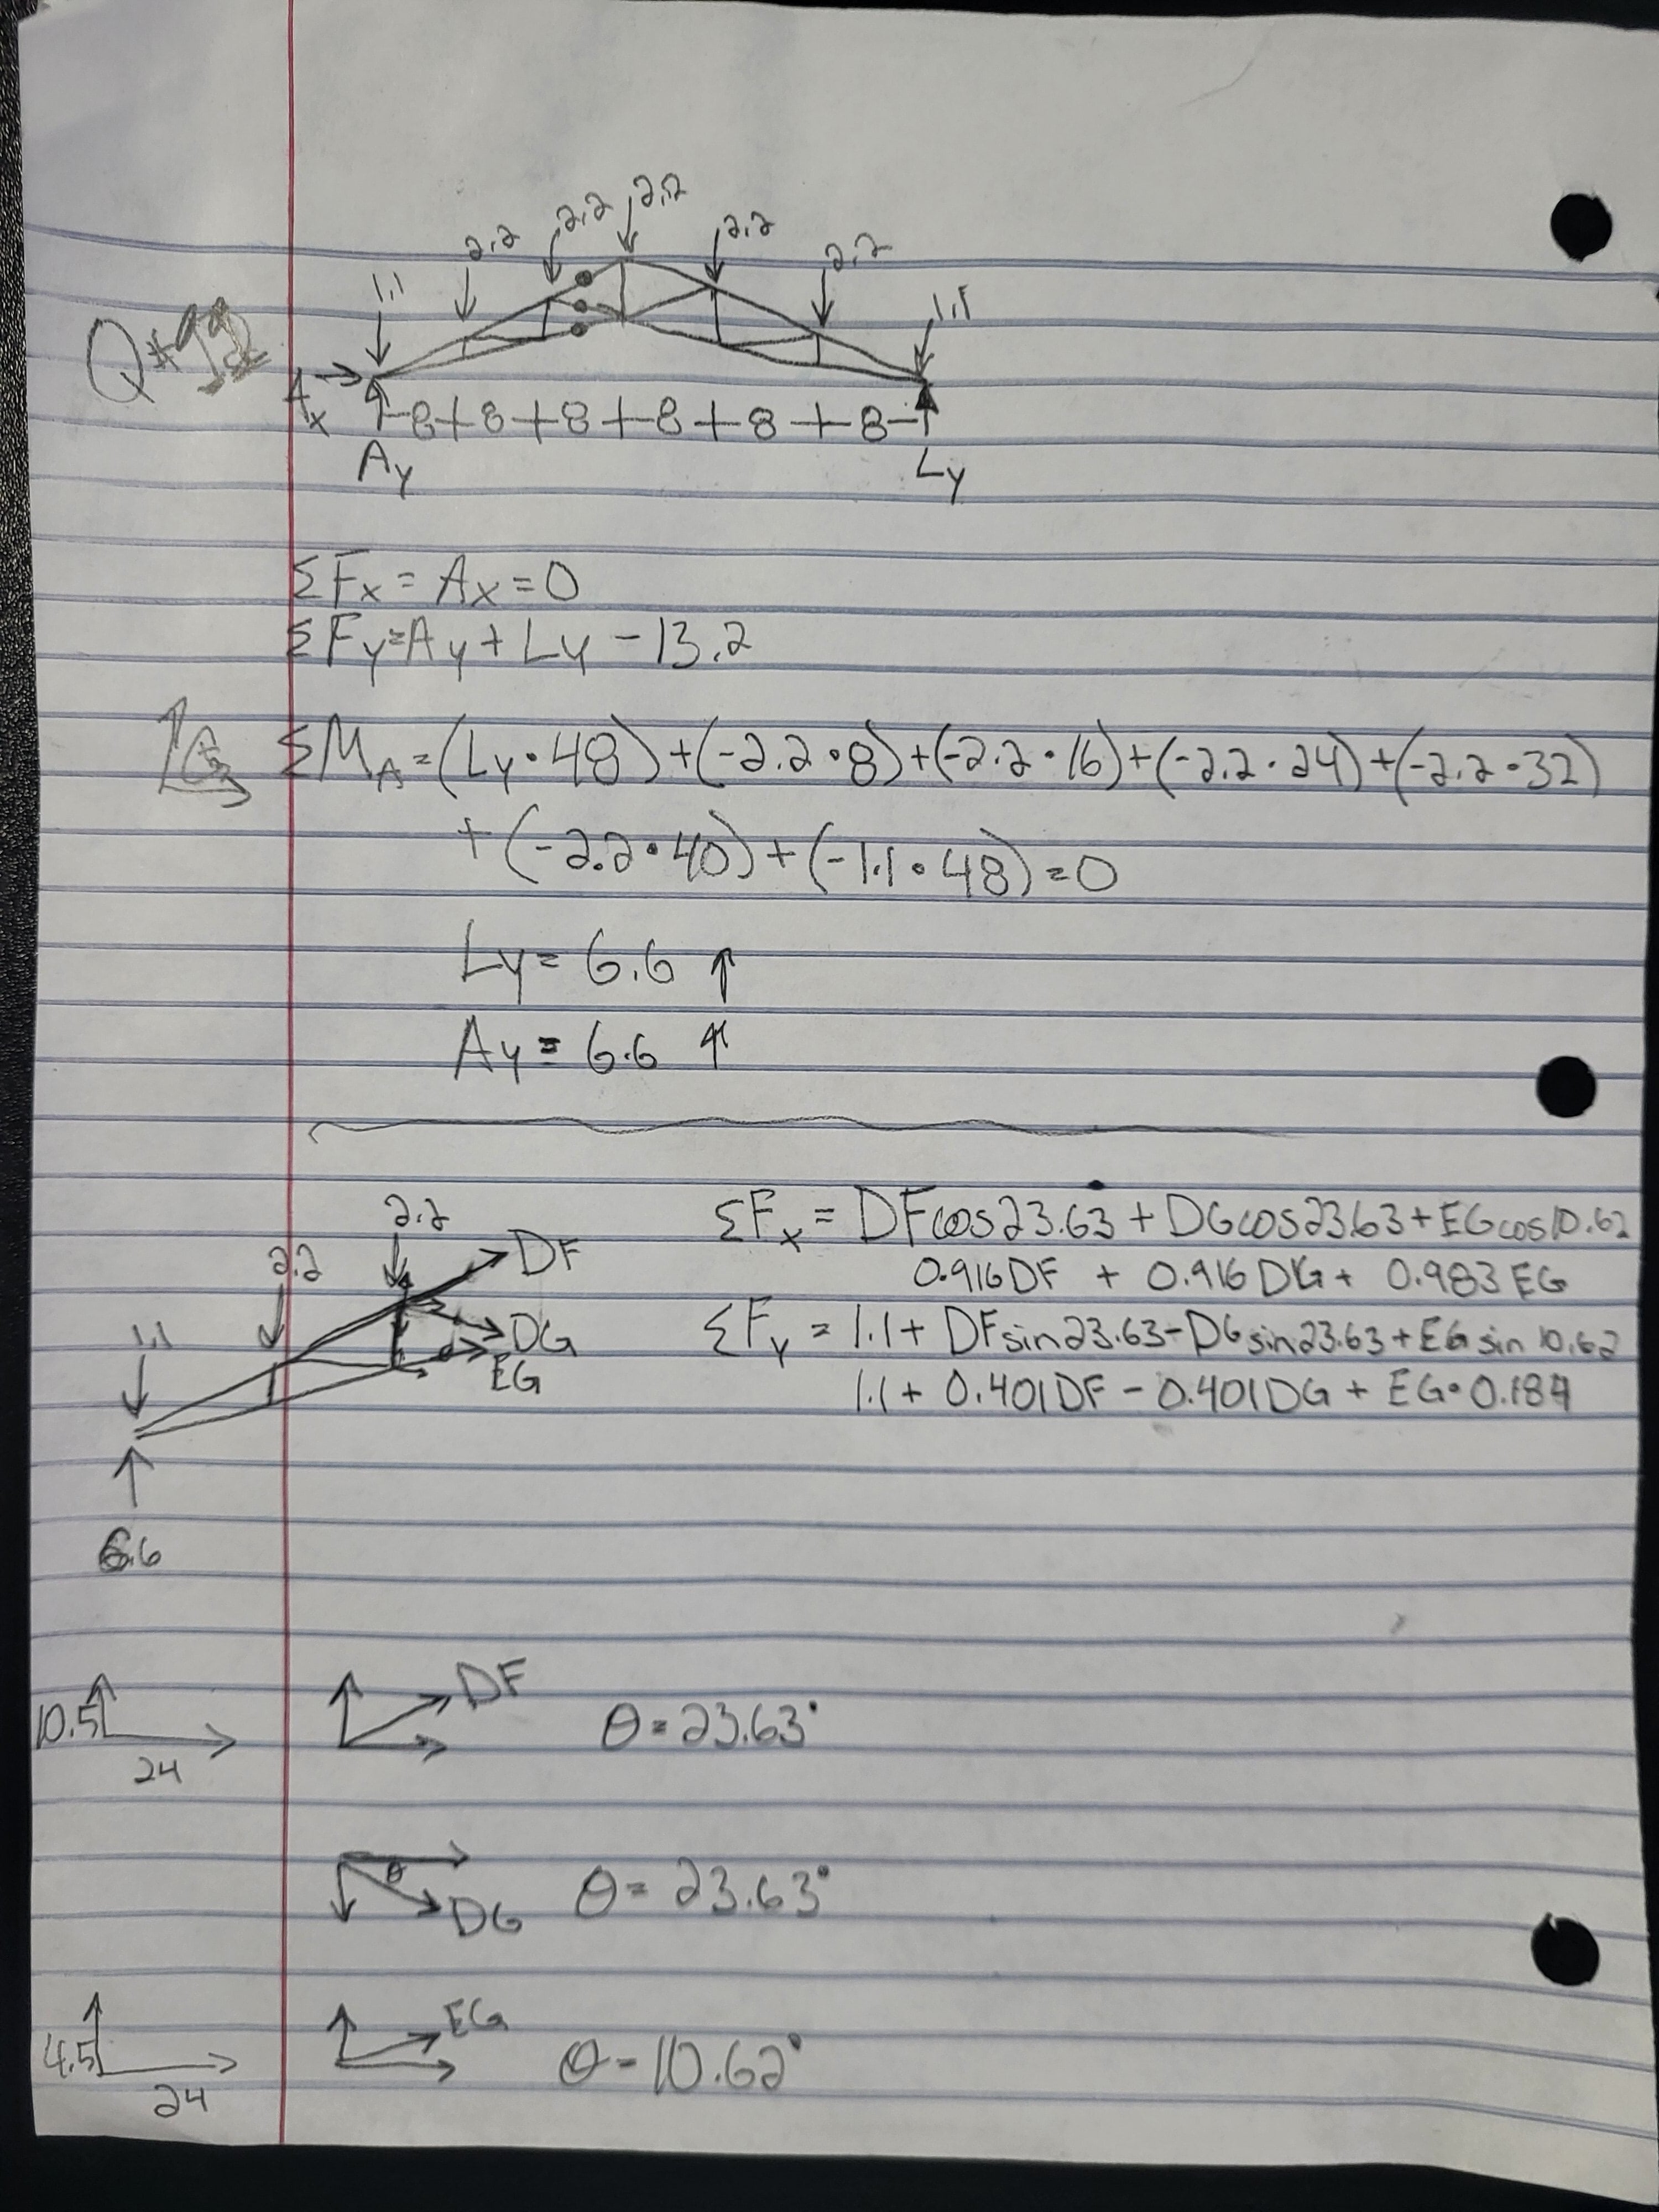 2.2 2.2
2.2 2.2
2.2
1.1 1.1
Q#
Ax
8+8+8+8+8+8
Ay Ly
ΣFx = Ax = 0
ΣFy = Ay + Ly - 13.2
ΣM_A = (Ly·48) + (-2.2·8) + (-2.2·16) + (-2.2·24) + (-2.2·32)
+ (-2.2·40) + (-1.1·48) = 0
Ly = 6.6 ↑
Ay = 6.6 ↑
2.2
DF
2.2
1.1
DG
EG
6.6
ΣFx = DFcos23.63 + DGcos23.63 + EGcos10.62
0.916DF + 0.916DG + 0.983EG
ΣFy = 1.1 + DFsin23.63 - DGsin23.63 + EGsin10.62
1.1 + 0.401DF - 0.401DG + EG·0.184
10.5 DF θ = 23.63°
24
θ DG θ = 23.63°
4.5 EG θ = 10.62°
24